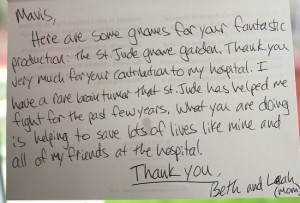 Mavis,
Here are some gnomes for your fantastic
production: The St. Jude gnome garden. Thank you
very much for your contribution to my hospital. I
have a rare brain tumor that St. Jude has helped me
fight for the past few years. What you are doing
is helping to save lots of lives like mine and
all of my friends at the hospital.
Thank you,
Beth and Leah
(Mom)